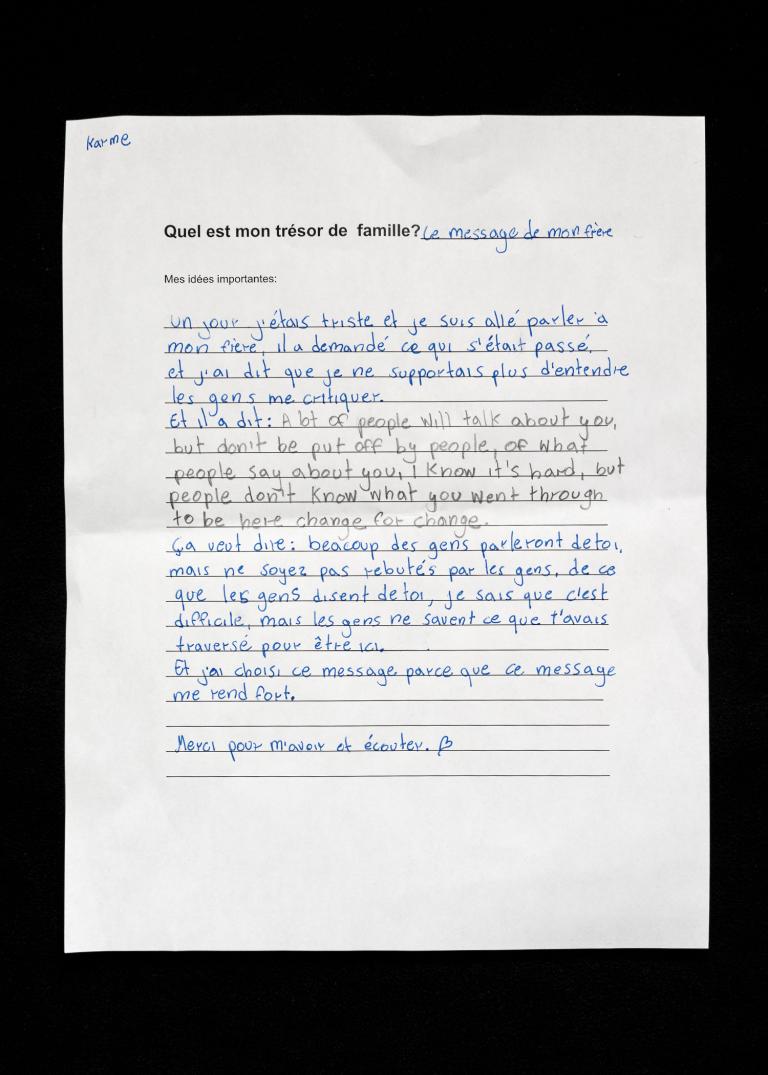 Karme
Quel est mon trésor de famille? Le message de mon frère
Mes idées importantes:
Un jour j'étais triste et je suis allé parler à
mon frère, il a demandé ce qui s'était passé,
et j'ai dit que je ne supportais plus d'entendre
les gens me critiquer.
Et il a dit: A lot of people will talk about you,
but don't be put off by people, of what
people say about you, I know it's hard, but
people don't know what you went through
to be here change for change.
Ça veut dire: beacoup des gens parleront de toi,
mais ne soyez pas rebutés par les gens, de ce
que les gens disent de toi, je sais que c'est
difficile, mais les gens ne savent ce que t'avais
traversé pour être ici.
Et j'ai choisi ce message parce que ce message
me rend fort.
Merci pour m'avoir et écouter.